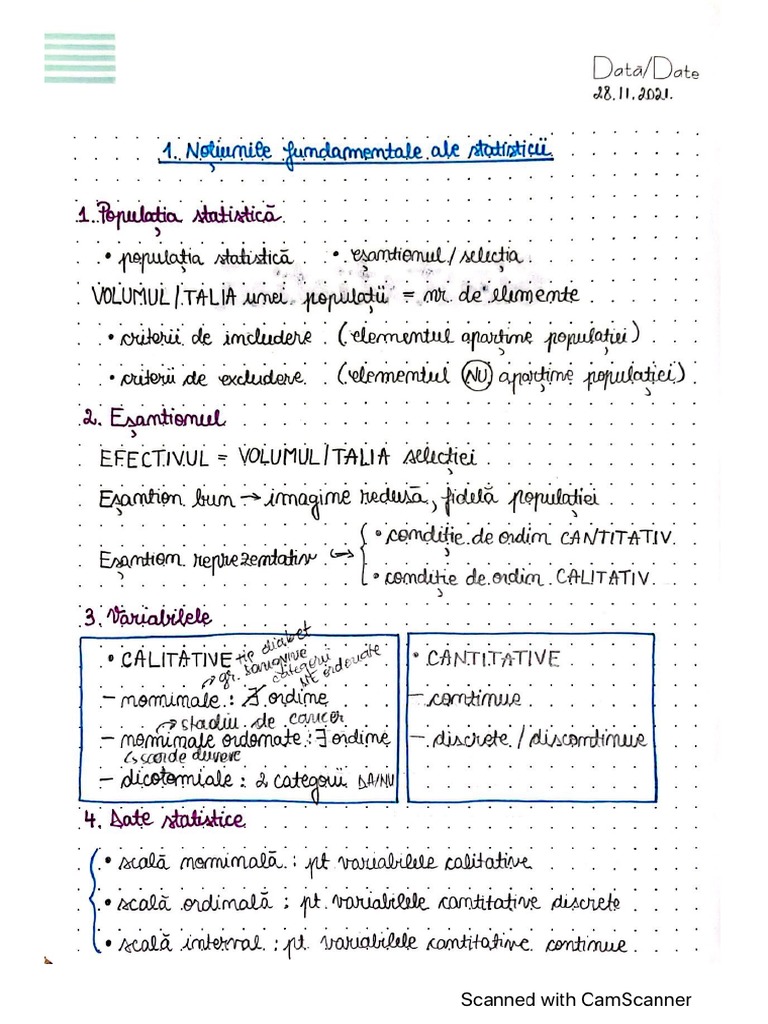 Dată/Date
28.11.2021.
1. Noțiunile fundamentale ale statisticii
1. Populația statistică
• populația statistică • eșantionul / selecția
VOLUMUL / TALIA unei populații = nr. de elemente
• criterii de includere (elementul aparține populației)
• criterii de excludere (elementul NU aparține populației)
2. Eșantionul
EFECTIVUL = VOLUMUL / TALIA selecției
Eșantion bun → imagine redusă, fidelă populației
Eșantion reprezentativ ↔
• condiție de ordin CANTITATIV
• condiție de ordin CALITATIV
3. Variabilele
• CALITATIVE
tip diabet
gr. sanguine
categorii
NEordonate
– nominale : ∄ ordine
→ stadiu de cancer
– nominale ordonate : ∃ ordine
↳ scor de durere
– dicotomiale : 2 categorii DA/NU
• CANTITATIVE
– continue
– discrete / discontinue
4. Date statistice
• scală nominală : pt variabilele calitative
• scală ordinală : pt. variabilele cantitative discrete
• scală interval : pt. variabilele cantitative continue
Scanned with CamScanner